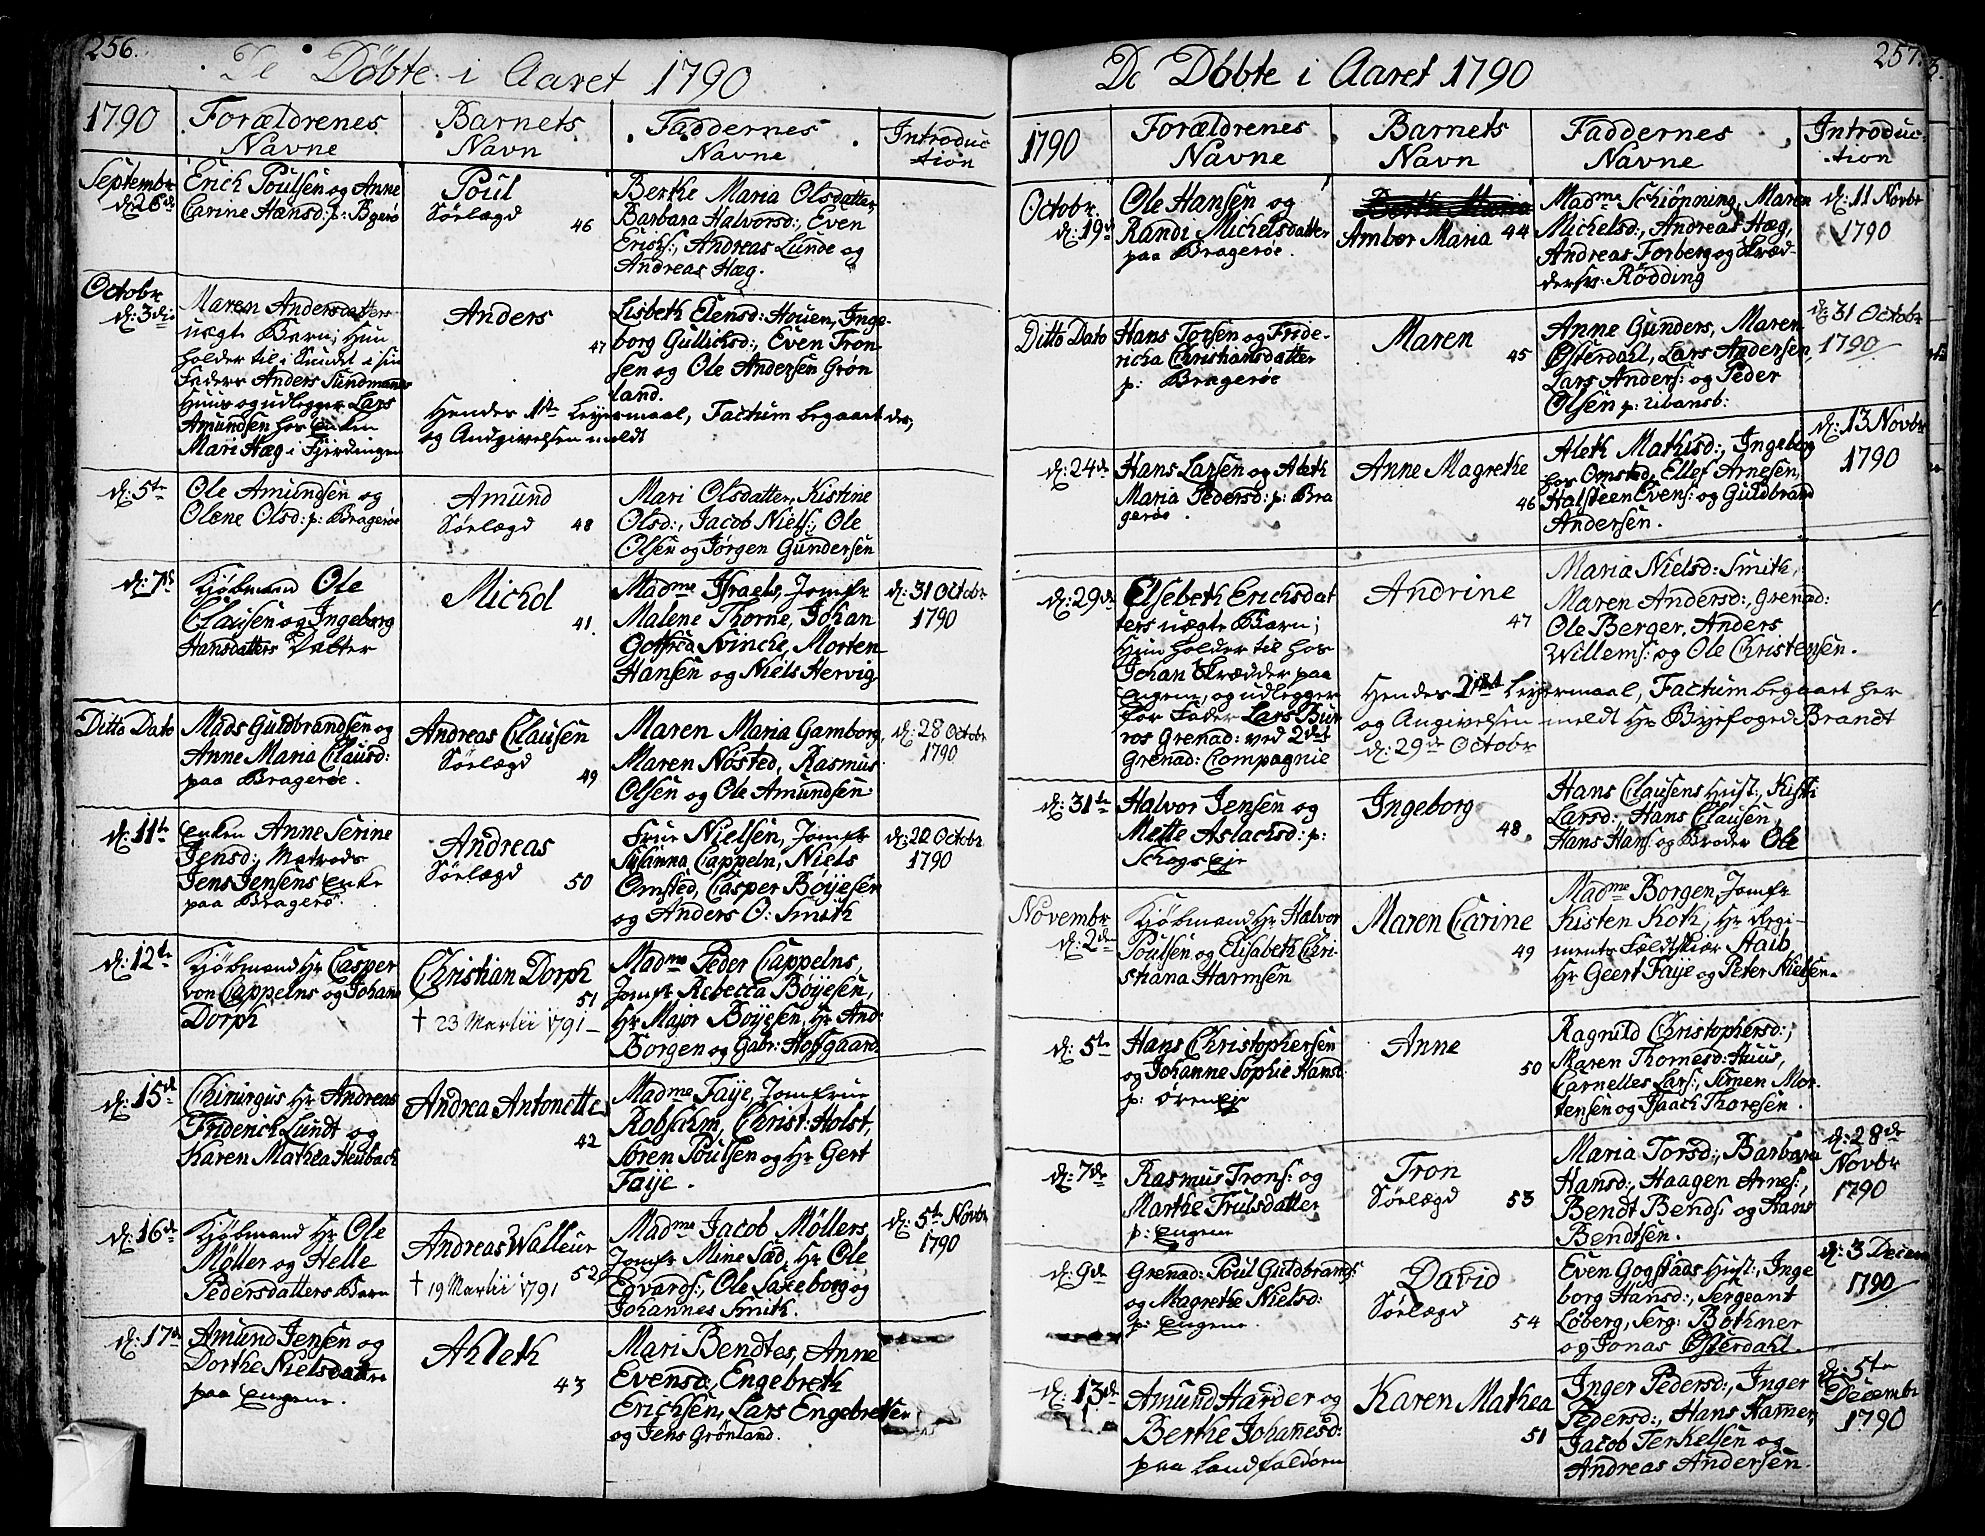 256.
De Döbte i Aaret 1790
1790
Forældrenes
Navne
Barnets
Navn
Faddernes
Navne
Introduc
tion
Septembr
d: 26de
Erich Poulsen og Anne
Carine Hansd: p: Bgerø
Poul
Sørlægd
46
Berthe Maria Olsdatter,
Barbara Halvorsd:, Even
Erichs:, Andreas Lunde og
Andreas Hæg.
Octobr
d: 3die
Maren Andersdatters
uægte Barn; Hun
holder til i Sundet i sin
Faders Anders Sundmands
Huus og udlegger Lars
Amundsen hos Enken
Mari Hæg i Fjerdingen
Anders
47
Lisbeth Elensd: Houen, Inge-
borg Gullichsd:, Even Tron
sen og Ole Andersen Grøn
land.
Hendes 1te Leyermaal, Factum begaaet der,
og Andgivelsen meldt
d: 5te
Ole Amundsen og
Olene Olsd: p: Bragerøe
Amund
Sørlægd
48
Mari Olsdatter, Kistine
Olsd:, Jacob Niels:, Ole
Olsen og Jørgen Gundersen
d: 7de
Kjøbmand Ole
Clausen og Ingeborg
Hansdatters Datter
Michol
41.
Madme Israels, Jomfr
Malene Thorne, Johan
Gotfred Nvinche, Morten
Hansen og Niels Hervig
d: 31 Octobr
1790
Ditto Dato
Mads Guldbrandsen og
Anne Maria Clausd:
paa Bragerøe.
Andreas Clausen
Sørlægd
49
Maren Maria Gamborg,
Maren Nøsted, Rasmus
Olsen og Ole Amundsen
d: 28 Octobr
1790
d: 11te
Enken Anne Serine
Jensd:, Matrods
Jens Jensens Enke
paa Bragerø.
Andreas
Sørlægd
50
Frue Nielsen, Jomfr
Susanna Cappeln, Niels
Omsted, Casper Bøyesen
og Anders O: Smith
d: 22 Octobr
1790
d: 12te
Kjøbmand Hr Casper
von Cappelns og Johana
Dorph
Christian Dorph
51
† 23 Martii 1791
Madme Peder Cappelns,
Jomfr Rebecca Bøyesen,
Hr Major Bøyesen, Hr And:
Borgen og Gabr: Hofgaard
d: 15de
Chirurgus Hr Andreas
Friderich Lundt og
Karen Mathea Heubach
Andrea Antonette
42
Madme Faye, Jomfrue
Robsahm, Christ: Holst,
Søren Poulsen og Hr Gert
Faye.
d: 16de
Kjøbmand Hr Ole
Møller og Helle
Pedersdatters Barn
Andreas Walleur
52
† 19 Martii 1791
Madme Jacob Møllers,
Jomfr Mine Sæd, Hr Ole
Edvards:, Ole Saxeborg og
Johannes Smith.
d: 5te Novbr
1790
d: 17de
Amund Jensen og
Dorthe Nielsdatter
paa Engene.
Ahleth
43
Mari Bendtes, Anne
Evensd, Engebreth
Erichsen, Lars Engebretsen
og Jens Grønland.
257.
De Döbte i Aaret 1790
1790
Forældrenes
Navne
Barnets
Navn
Faddernes
Navne
Introduc
tion
Octobr
d: 19de
Ole Hansen og
Randi Michelsdatter
paa Bragerøe.
Berthe Maria
Ambor Maria
44
Madme Schiønning, Maren
Michelsd:, Andreas Hæg,
Andreas Forberg og Skræd-
dersv: Rødding
d: 11 Novbr
1790
Ditto Dato
Hans Torsen og Fride-
richa Christiansdatter
p: Bragerøe
Maren
45
Anne Gunders, Maren
Østerdahl, Lars Andersen,
Lars Anders: og Peder
Olsen p: Ubansb:
d: 31 Octobr
1790
d: 24de
Hans Larsen og Aleth
Maria Pedersd: p: Bra
gerøe.
Anne Magrethe
46
Aleth Mathisd:, Ingeborg
hos Omsted, Ellef Arnesen,
Halsteen Evens: og Guldbrand
Andersen.
d: 13 Novbr
1790
d: 29de
Elsebeth Erichsdat
ters uægte Barn;
Hun holder til hos
Johan Skrædder paa
Engene, og udlegger
for Fader Lars Bur
ros Grenad: ved 2det
Grenad: Compagnie
Andrine
47
Maria Nielsd: Smith,
Maren Andersd:, Grenad:
Ole Berger, Anders
Willems: og Ole Christensen.
Hendes 2det Leyermaal, Factum begaaet her
og Angivelsen meldt Hr Byefoged Brandt
d: 29de Octobr
d: 31te
Halvor Jensen og
Mette Aslachsd: p:
Schogs Eje
Ingeborg
48.
Hans Clausens Hust:, Kisti
Larsd:, Hans Clausen,
Hans Hans: og Broder Ole
Novembr
d: 2den
Kjøbmand Hr Halvor
Poulsen og Elisabeth Chri-
stiana Harmsen
Maren Carine
49
Madme Borgen, Jomfr
Kisten Koth, Hr Regi-
ments Feldtskiær Haib,
Hr Geert Faye og Peter Nielsen
d: 5te
Hans Christophersen
og Johanne Sophie Hansd
p: Øren Eje
Anne
50
Ragnild Christophersd:,
Maren Thomesd: Huus,
Carnelles Lars:, Simen Mor-
tensen og Isaach Thoresen.
d: 7de
Rasmus Trons: og
Marthe Trulsdatter
p: Engene
Tron
Sørlægd
53
Maria Torsd:, Barbara
Hansd:, Haagen Arnes:,
Bendt Bends: og Hans
Bendtsen.
d: 28de
Novbr
1790
d: 9de
Grenad: Poul Guldbrands:
og Magrethe Nielsd:
p: Engene.
David
Sørlægd
54
Even Gogstads Hust:, Inge
borg Hansd:, Sergeant
Løberg, Serg: Bothner
og Jonas Østerdahl.
d: 3 Decem
1790
d: 13de
Amund Harder og
Berthe Johanesd:
paa Landfaldøen
Karen Mathea
51
Inger Pedersd:, Inger
Pedersd:, Hans Hamer,
Jacob Terkelsen og
Andreas Andersen.
d: 5te
Decembr
1790